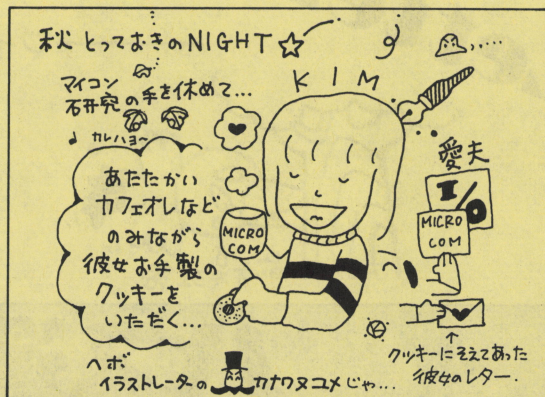 秋 とっておきのNIGHT☆
KIM
マイコン
研究の手を休めて...
♪ カレハヨ〜
あたたかい
カフェオレなど
のみながら
彼女お手製の
クッキーを
いただく...
MICRO
COM
愛夫
I/O
MICRO
COM
↑
クッキーにそえてあった
彼女のレター.
ヘボ
イラストレーターの カナワヌユメじゃ...